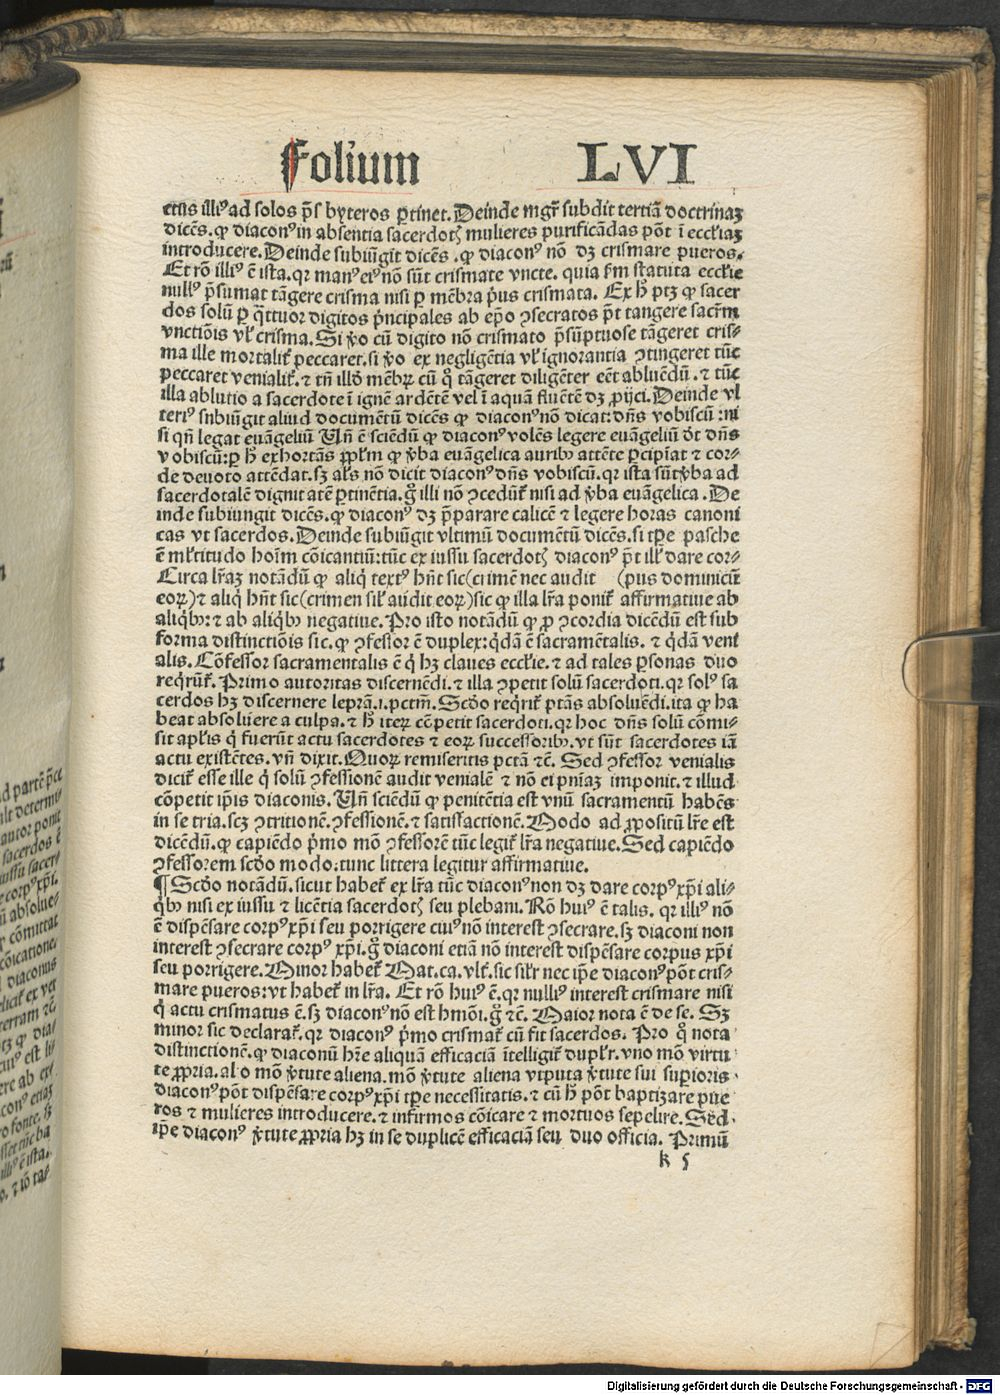 Folium LVI
ctus illiꝰ ad solos p̄s byteros ꝑtinet. Deinde mgr̄ subdit tertiā doctrinaꝫ
dicēs. ꝙ diaconꝰ in absentia sacerdotꝭ mulieres purificādas pōt ī eccl̄iaꝫ
introducere. Deinde subiūgit dicēs. ꝙ diaconꝰ nō dꝫ crismare pueros.
Et rō illiꝰ ē ista. qꝛ manꝰ eiꝰ nō sūt crismate vncte. quia ẜm statuta eccl̄ie
nullꝰ p̄sumat tāgere crisma nisi ꝑ mēbra p̄us crismata. Ex h̄ ptꝫ ꝙ sacer
dos solū ꝑ q̄ttuor digitos p̄ncipales ab ep̄o ꝯsecratos p̄t tangere sacr̄m
vnctiōis vl̓ crisma. Si ṽo cū digito nō crismato p̄sūptuose tāgeret cris-
ma ille mortalit̓ peccaret. si ṽo ex negligētia vl̓ ignorantia ꝯtingeret tūc
peccaret venialit̓. ⁊ tn̄ illd̓ mēbꝝ cū q̊ tāgeret diligēter eēt abluēdū. ⁊ tūc
illa ablutio a sacerdote ī ignē ardētē vel ī aquā fluētē dꝫ ꝓijci. Deinde vl
teriꝰ snbiūgit aliud documētū dicēs ꝙ diaconꝰ nō dicat: dn̄s vobiscū: ni
si qn̄ legat euāgeliū Vn̄ ē sciēdū ꝙ diaconꝰ volēs legere euāgeliū dt̄ dn̄s
vobiscū: ꝑ h̄ exhortās ꝓpl̄m ꝙ ṽba euāgelica auribꝰ attēte ꝑcipiat ⁊ cor-
de deuoto attēdat. sꝫ al̓s nō dicit diaconꝰ dn̄s vobiscū. qꝛ ista sūt ṽba ad
sacerdotalē dignitatē ꝑtinētia. g̊ illi nō ꝯcedūt̓ nisi ad ṽba euāgelica. De
inde subiungit dicēs. ꝙ diaconꝰ dꝫ p̄parare calicē ⁊ legere horas canoni
cas vt sacerdos. Deinde subiūgit vltimū documētū dicēs. si tꝑe pasche
ē ml̓titudo hoīm cōicantiū: tūc ex iussu sacerdotꝭ diaconꝰ p̄t ill̓ dare cor-
Circa lr̄aꝫ notādū ꝙ aliq̇ textꝰ hn̄t sic (crimē nec audit (pus dominicū
eoꝝ) ⁊ aliq̇ hn̄t sic (crimen sil̓ audit eoꝝ) sic ꝙ illa lr̄a ponit̓ affirmatiue ab
aliq̇bꝰ: ⁊ ab aliq̇bꝰ negatiue. Pro isto notādū ꝙ ꝓ ꝯcordia dicēdū est sub
forma distinctiōis sic. ꝙ ꝯfessor ē duplex: q̇dā ē sacramētalis. ⁊ q̇dā veni
alis. Cōfessor sacramentalis ē q̇ hꝫ claues eccl̄ie. ⁊ ad tales ꝑsonas duo
reqr̄ūt̓. Primo autoritas discernēdi. ⁊ illa ꝯpetit solū sacerdoti. qꝛ solꝰ sa
cerdos hꝫ discernere leprā. i. pctm̄. Scd̓o reqr̄it̓ ptās absoluēdi. ita ꝙ ha
beat absoluere a culpa. ⁊ h̄ iteꝝ cōpetit sacerdoti. qꝛ hoc dn̄s solū cōmi-
sit apl̓is q̇ fuerūt actu sacerdotes ⁊ eoꝝ successoribꝰ. vt sūt sacerdotes iā
actu existētes. vn̄ dixit. Quoꝝ remiseritis pctā ⁊c̄. Sed ꝯfessor venialis
dicit̓ esse ille q̇ solū ꝯfessionē audit venialē ⁊ nō ei pn̄iaꝫ imponit. ⁊ illud
cōpetit ip̄is diaconis. Vn̄ sciēdū ꝙ penitētia est vnū sacramentū habēs
in se tria. scꝫ ꝯtritionē. ꝯfessionē. ⁊ satisfactionē. Modo ad ꝓpositū lr̄e est
dicēdū. ꝙ capiēdo p̄mo mō ꝯfessorē tūc legit̓ lr̄a negatiue. Sed capiēdo
ꝯfessorem scd̓o modo: tunc littera legitur affirmatiue.
¶ Scd̓o notādū. sicut habet̓ ex lr̄a tūc diaconꝰ non dꝫ dare corpꝰ xp̄i ali-
q̇bꝰ nisi ex iussu ⁊ licētia sacerdotꝭ seu plebani. Rō huiꝰ ē talis. qꝛ illiꝰ nō
ē dispēsare corpꝰ xp̄i seu porrigere cuiꝰ nō interest ꝯsecrare. sꝫ diaconi non
interest ꝯsecrare corpꝰ xp̄i. g̊ diaconi etiā nō interest dispēsare corpus xp̄i
seu porrigere. Minor habet̓ Mat. ca. vlt̓. sic sil̓r nec ip̄e diaconꝰ pōt cris-
mare pueros: vt habet̓ in lr̄a. Et rō huiꝰ ē. qꝛ nulliꝰ interest crismare nisi
q̇ actu crismatus ē. sꝫ diaconꝰ nō est hmōi. g̊ ⁊c̄. Maior nota ē de se. Sꝫ
minor sic declarat̓. qꝛ diaconꝰ p̄mo crismat̓ cū fit sacerdos. Pro q̊ nota
distinctionē. ꝙ diaconū hr̄e aliquam efficaciā ītelligit̓ dupl̓r. vno mō virtu
te ꝓpria. alio mō ṽtute aliena. mō ṽtute aliena vtputa ṽtute sui suꝑioris.
diaconꝰ pōt dispēsare corpꝰ xp̄i tꝑe necessitatis. ⁊ cū h̄ pōt baptizare pue
ros ⁊ mulieres introducere. ⁊ infirmos cōicare ⁊ mortuos sepelire. Sed
ip̄e diaconꝰ ṽtute ꝓpria hꝫ in se duplicē efficaciā seu duo officia. Primū
k 5
Digitalisierung gefördert durch die Deutsche Forschungsgemeinschaft - DFG